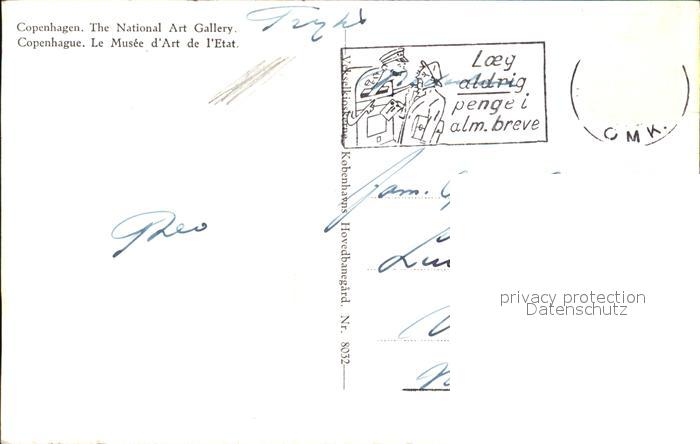 Copenhagen. The National Art Gallery.
Copenhague. Le Musée d'Art de l'Etat.
Læg
aldrig
penge i
alm. breve
OMK.
Vekselkiosken, Københavns Hovedbanegård. Nr. 8032
Theo
Fam.
privacy protection
Datenschutz